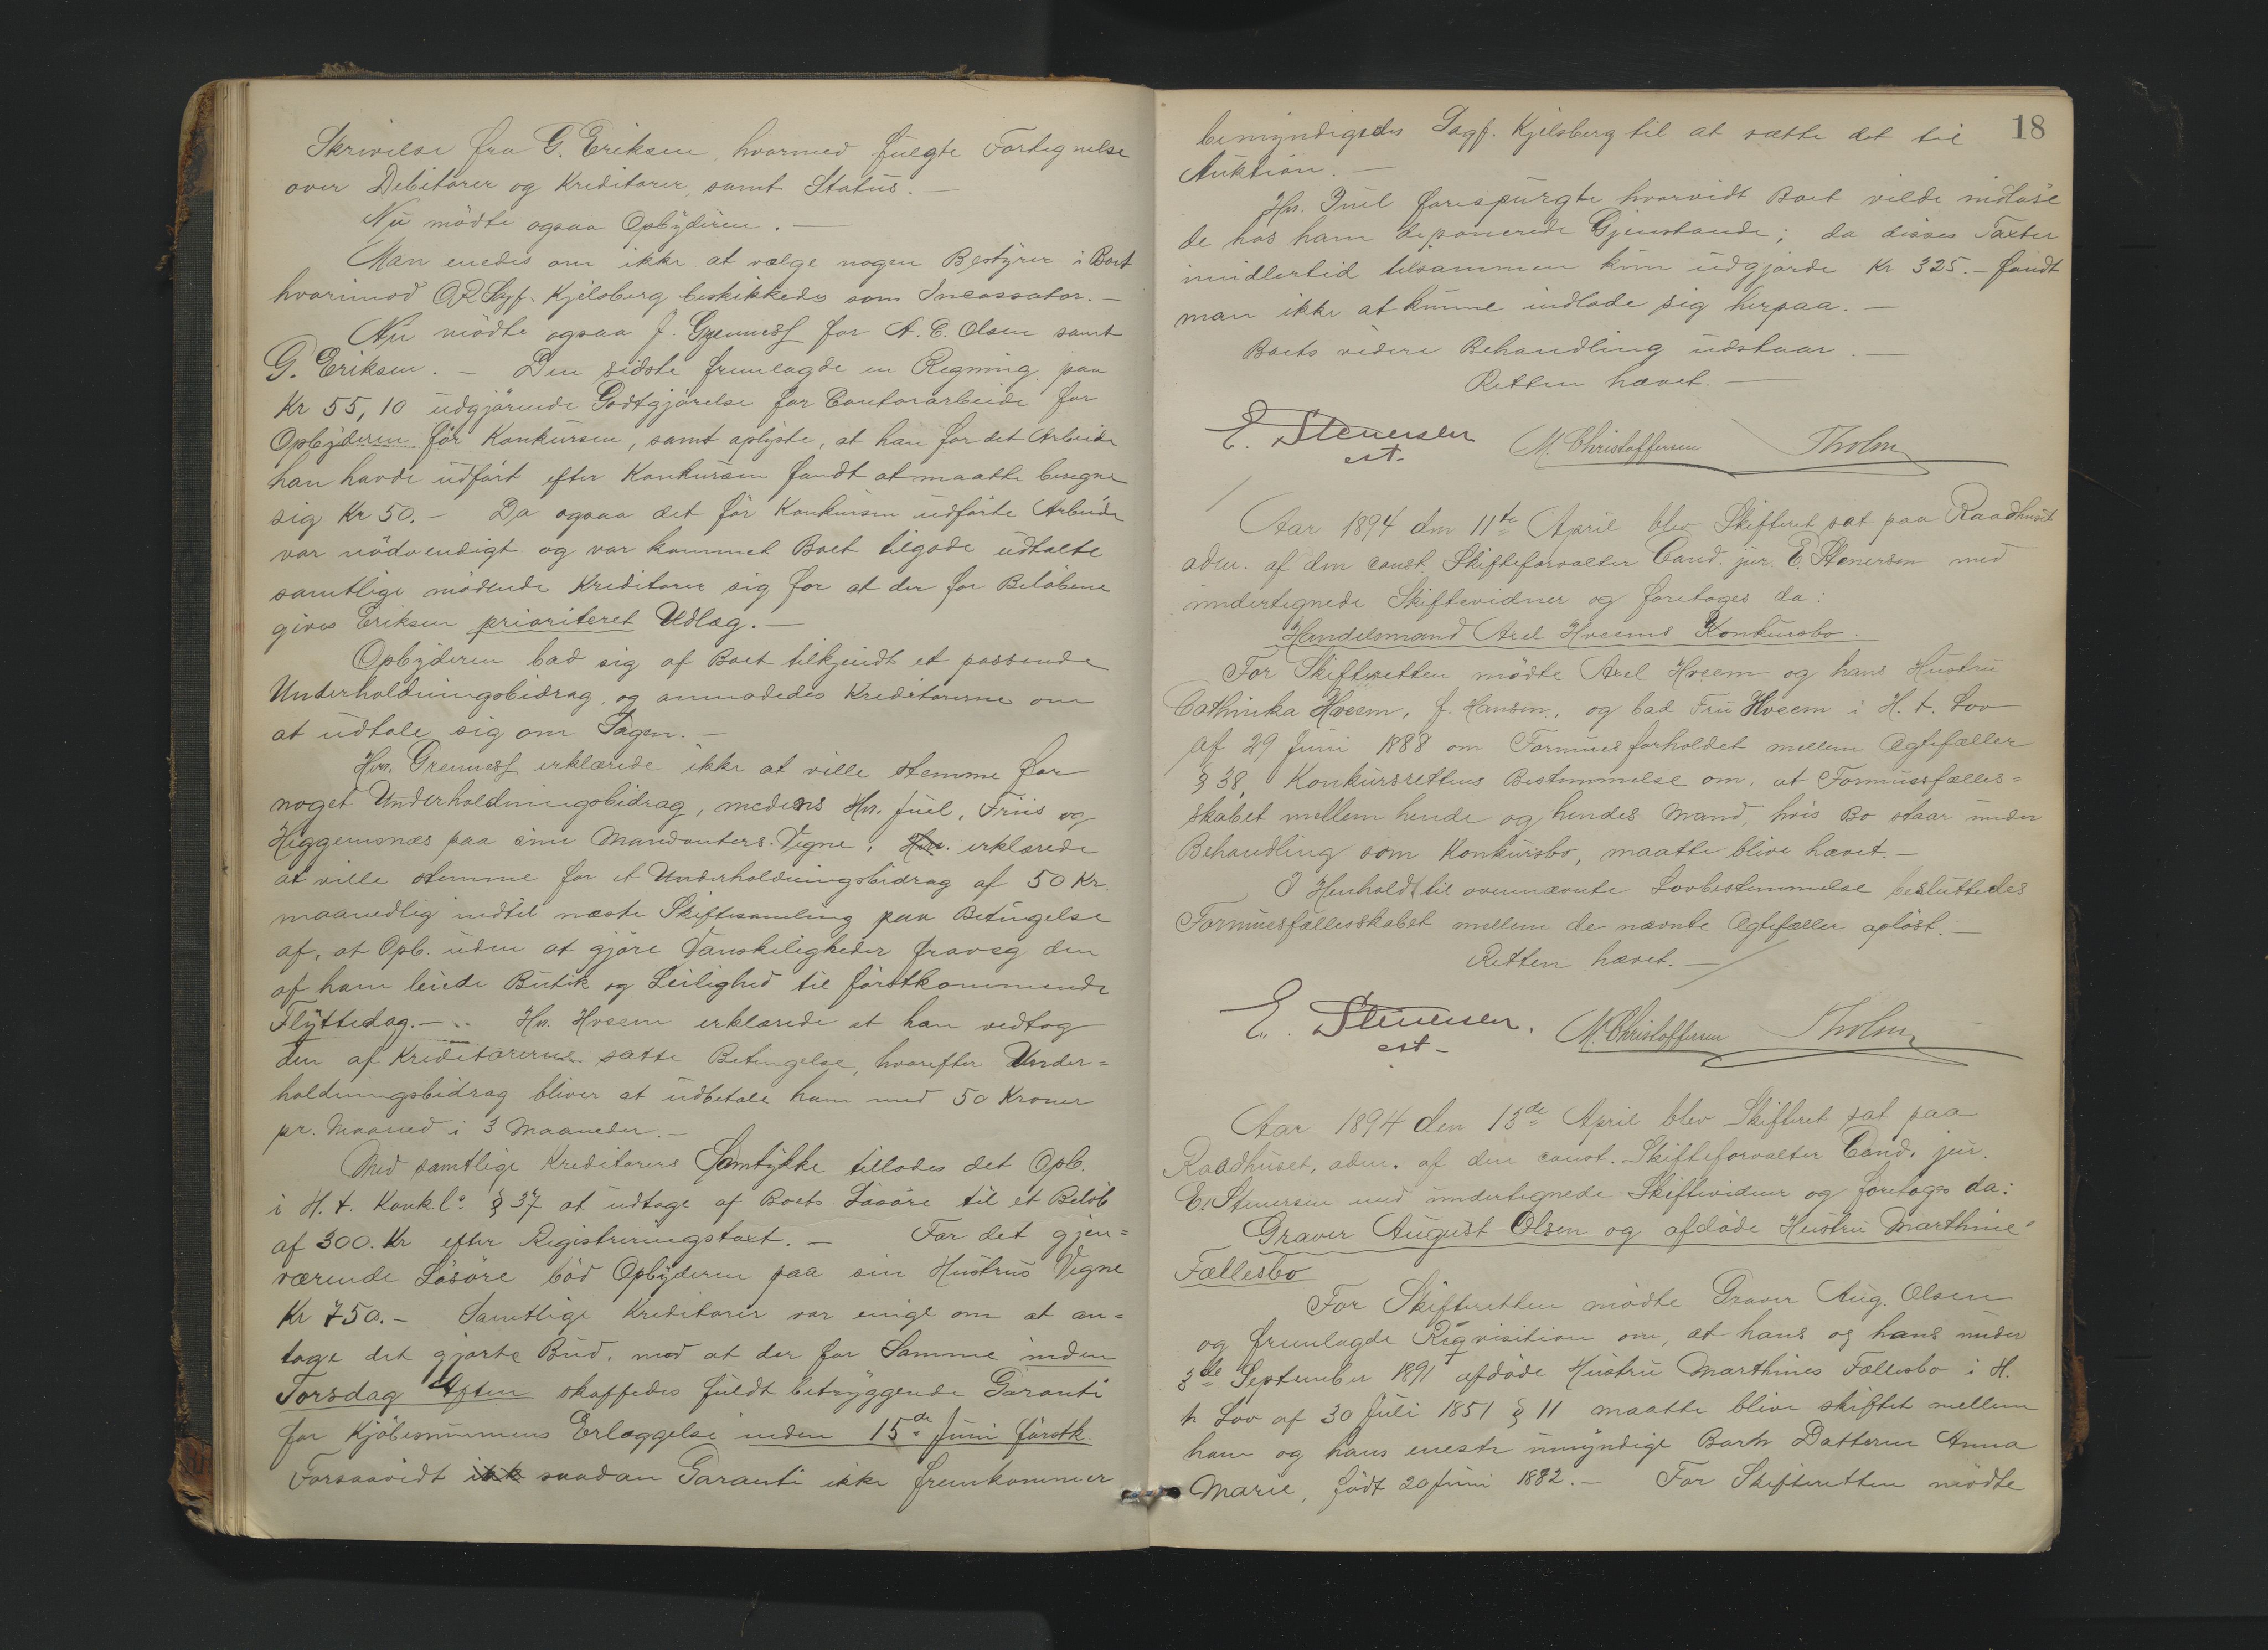 Skrivelse fra G. Eriksen, hvormed fulgte Fortegnelse
over Debitorer og Kreditorer, samt Status. —
Nu mödte ogsaa Opbyderen. —
Man enedes om ikke at vælge nogen Bestyrer i Boet
hvorimod ORSagf. Kjelsberg beskikkedes som Incassator. —
Nu mödte ogsaa J. Grenness for A. E. Olsen samt
G. Eriksen. — Den sidste fremlagde en Regning paa
Kr 55,10 udgjørende Godtgjørelse for Contorarbeide for
Opbyderen før Konkursen, samt oplyste, at han for det Arbeide
han havde udført efter Konkursen fandt at maatte beregne
sig Kr 50. — Da ogsaa det før Konkursen udførte Arbeide
var nödvendigt og var kommet Boet tilgode udtalte
samtlige mödende Kreditorer sig for at der for Beløbene
gives Eriksen prioriteret Udlæg. —
Opbyderen bad sig af Boet tilkjendt et passende
Underholdningsbidrag, og anmodedes Kreditorerne om
at udtale sig om Sagen. —
Hrr. Grenness erklærede ikke at ville stemme for
noget Underholdningsbidrag, medens Hrr. Juel, Friis og
Heggemsnæs paa sine Mandanters Vegne, Hrr. erklærede
at ville stemme for et Underholdningsbidrag af 50 Kr.
maanedlig indtil næste Skiftesamling paa Betingelse
af, at Opb. uden at gjøre Vanskeligheder fraveg den
af ham leiede Butik og Leilighed til førstkommende
Flyttedag. — Hr. Hveem erklærede at han vedtog
den af Kreditorerne satte Betingelse, hvorefter Under=
holdningsbidrag bliver at udbetale ham med 50 Kroner
pr. Maaned i 3 Maaneder. —
Med samtlige Kreditorers Samtykke tillodes det Opb.
i H. t. Konk.l. § 37 at udtage af Boets Løsøre til et Beløb
af 300. Kr efter Registreringstaxt. — For det gjen=
værende Løsøre bød Opbyderen paa sin Hustrus Vegne
Kr 750. — Samtlige Kreditorer var enige om at an=
tage det gjorte Bud, mod at der for Samme inden
Torsdag Aften skaffedes fuldt betryggende Garanti
for Kjøbesummens Erlæggelse inden 15de Juni førstk.
Forsaavidt ikk saadan Garanti ikke fremkommer
18
bemyndigedes Sagf. Kjelsberg til at sætte det til
Auktion. —
Hr. Juel forespurgte hvorvidt Boet vilde indløse
de hos ham deponerede Gjenstande; da disses Taxter
imidlertid tilsammen kun udgjorde Kr 325. — fandt
man ikke at kunne indlade sig herpaa. —
Boets videre Behandling udstaar. —
Retten hævet. —
E. Stenersen M. Christoffersen Tholm
cst.
Aar 1894 den 11te April blev Skifteret sat paa Raadhuset
adm. af den const. Skifteforvalter Cand. jur. E. Stenersen med
undertegnede Skiftevidner og foretoges da:
Handelsmand Axel Hveems Konkursbo.
For Skifteretten mødte Axel Hveem og hans Hustru
Cathinka Hveem, f. Hansen, og bad Fru Hveem i H. t. Lov
af 29 Juni 1888 om Formuesforholdet mellem Ægtefæller
§ 38, Konkursrettens Bestemmelse om, at Formuesfælles=
skabet mellem hende og hendes Mand, hvis Bo staar under
Behandling som Konkursbo, maatte blive hævet. —
I Henhold til ovennævnte Lovbestemmelse besluttedes
Formuesfællesskabet mellem de nævnte Ægtefæller opløst. —
Retten hævet. —
E. Stenersen. M. Christoffersen Tholm
cst.
Aar 1894 den 13de April blev Skifteret sat paa
Raadhuset, adm. af den const. Skifteforvalter Cand. jur.
E. Stenersen med undertegnede Skiftevidner og foretoges da:
Graver August Olsen og afdøde Hustru Marthine's
Fællesbo
For Skifteretten mødte Graver Aug. Olsen
og fremlagde Reqvisition om, at hans og hans under
3de September 1891 afdøde Hustru Marthines Fællesbo i H.
t. Lov af 30 Juli 1851 § 11 maatte blive skiftet mellem
ham og hans eneste umyndige Barn Datteren Anna
Marie, født 20 Juni 1882. — For Skifteretten mødte